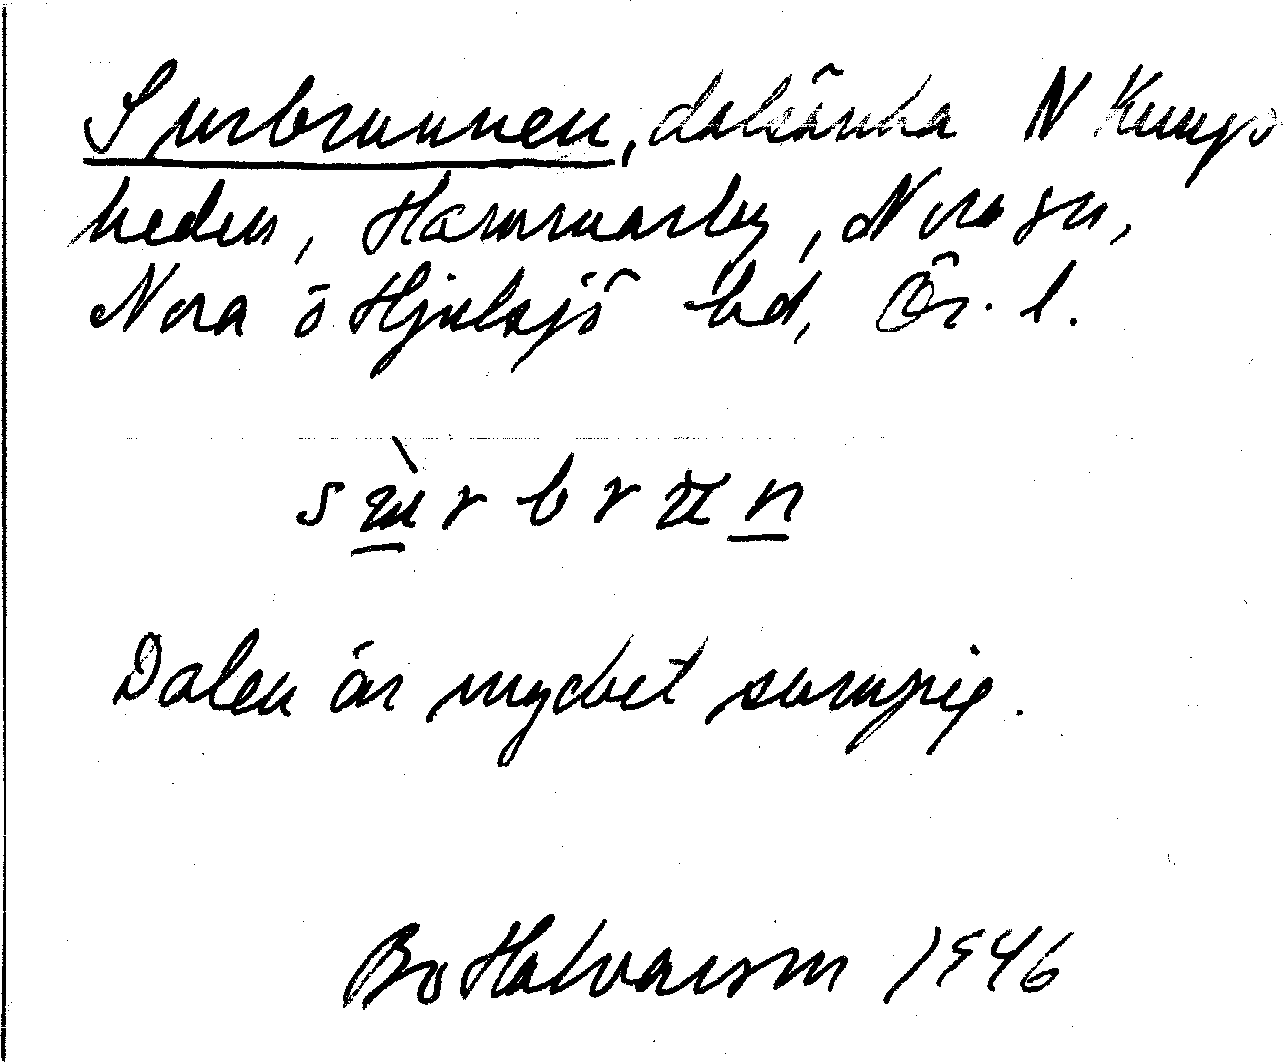 Surbrunnen, dalsänka N Kungs
heden, Hammarby, Nora sn,
Nora o Hjulsjö bd, Ör. l.
Dalen är mycket sumpig.
Bo Halvarson 1946